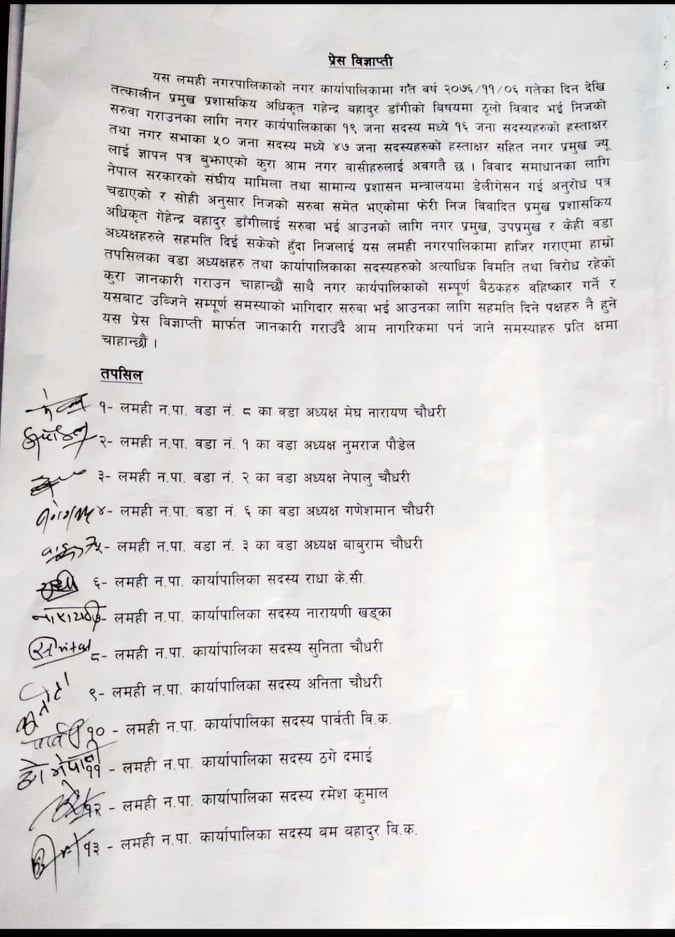 प्रेस विज्ञाप्ती
यस लमही नगरपालिकाको नगर कार्यापालिकामा गत बर्ष २०७६/११/०६ गतेका दिन देखि
तत्कालीन प्रमुख प्रशासकिय अधिकृत गहेन्द्र बहादुर डाँगीको बिषयमा ठूलो विवाद भई निजको
सरुवा गराउनका लागि नगर कार्यपालिकाका १९ जना सदस्य मध्ये १६ जना सदस्यहरुको हस्ताक्षर
तथा नगर सभाका ५० जना सदस्य मध्ये ४७ जना सदस्यहरुको हस्ताक्षर सहित नगर प्रमुख ज्यू
लाई ज्ञापन पत्र बुझाएको कुरा आम नगर बासीहरुलाई अवगतै छ । विवाद समाधानका लागि
नेपाल सरकारको संघीय मामिला तथा सामान्य प्रशासन मन्त्रालयमा डेलीगेसन गई अनुरोध पत्र
चढाएको र सोही अनुसार निजको सरुवा समेत भएकोमा फेरी निज विवादित प्रमुख प्रशासकिय
अधिकृत गेहेन्द्र बहादुर डाँगीलाई सरुवा भई आउनको लागि नगर प्रमुख, उपप्रमुख र केही वडा
अध्यक्षहरुले सहमति दिई सकेको हुँदा निजलाई यस लमही नगरपालिकामा हाजिर गराएमा हाम्रो
तपसिलका वडा अध्यक्षहरु तथा कार्यापालिकाका सदस्यहरुको अत्याधिक विमति तथा विरोध रहेको
कुरा जानकारी गराउन चाहान्छौं साथै नगर कार्यपालिकाको सम्पूर्ण बैठकहरु वहिष्कार गर्ने र
यसबाट उब्जिने सम्पूर्ण समस्याको भागिदार सरुवा भई आउनका लागि सहमति दिने पक्षहरु नै हुने
यस प्रेस विज्ञाप्ती मार्फत जानकारी गराउँदै आम नागरिकमा पर्न जाने समस्याहरु प्रति क्षमा
चाहान्छौं ।
तपसिल
१- लमही न.पा. वडा नं. ८ का वडा अध्यक्ष मेघ नारायण चौधरी
२- लमही न.पा. वडा नं. १ का वडा अध्यक्ष नुमराज पौडेल
३- लमही न.पा. वडा नं. २ का वडा अध्यक्ष नेपालु चौधरी
४- लमही न.पा. वडा नं. ६ का वडा अध्यक्ष गणेशमान चौधरी
५- लमही न.पा. वडा नं. ३ का वडा अध्यक्ष बाबुराम चौधरी
६- लमही न.पा. कार्यापालिका सदस्य राधा के.सी.
७- लमही न.पा. कार्यापालिका सदस्य नारायणी खड्का
८- लमही न.पा. कार्यापालिका सदस्य सुनिता चौधरी
९- लमही न.पा. कार्यापालिका सदस्य अनिता चौधरी
पार्वती १०- लमही न.पा. कार्यापालिका सदस्य पार्वती वि.क.
११- लमही न.पा. कार्यापालिका सदस्य ठगे दमाई
१२- लमही न.पा. कार्यापालिका सदस्य रमेश कुमाल
१३- लमही न.पा. कार्यापालिका सदस्य बम बहादुर वि.क.